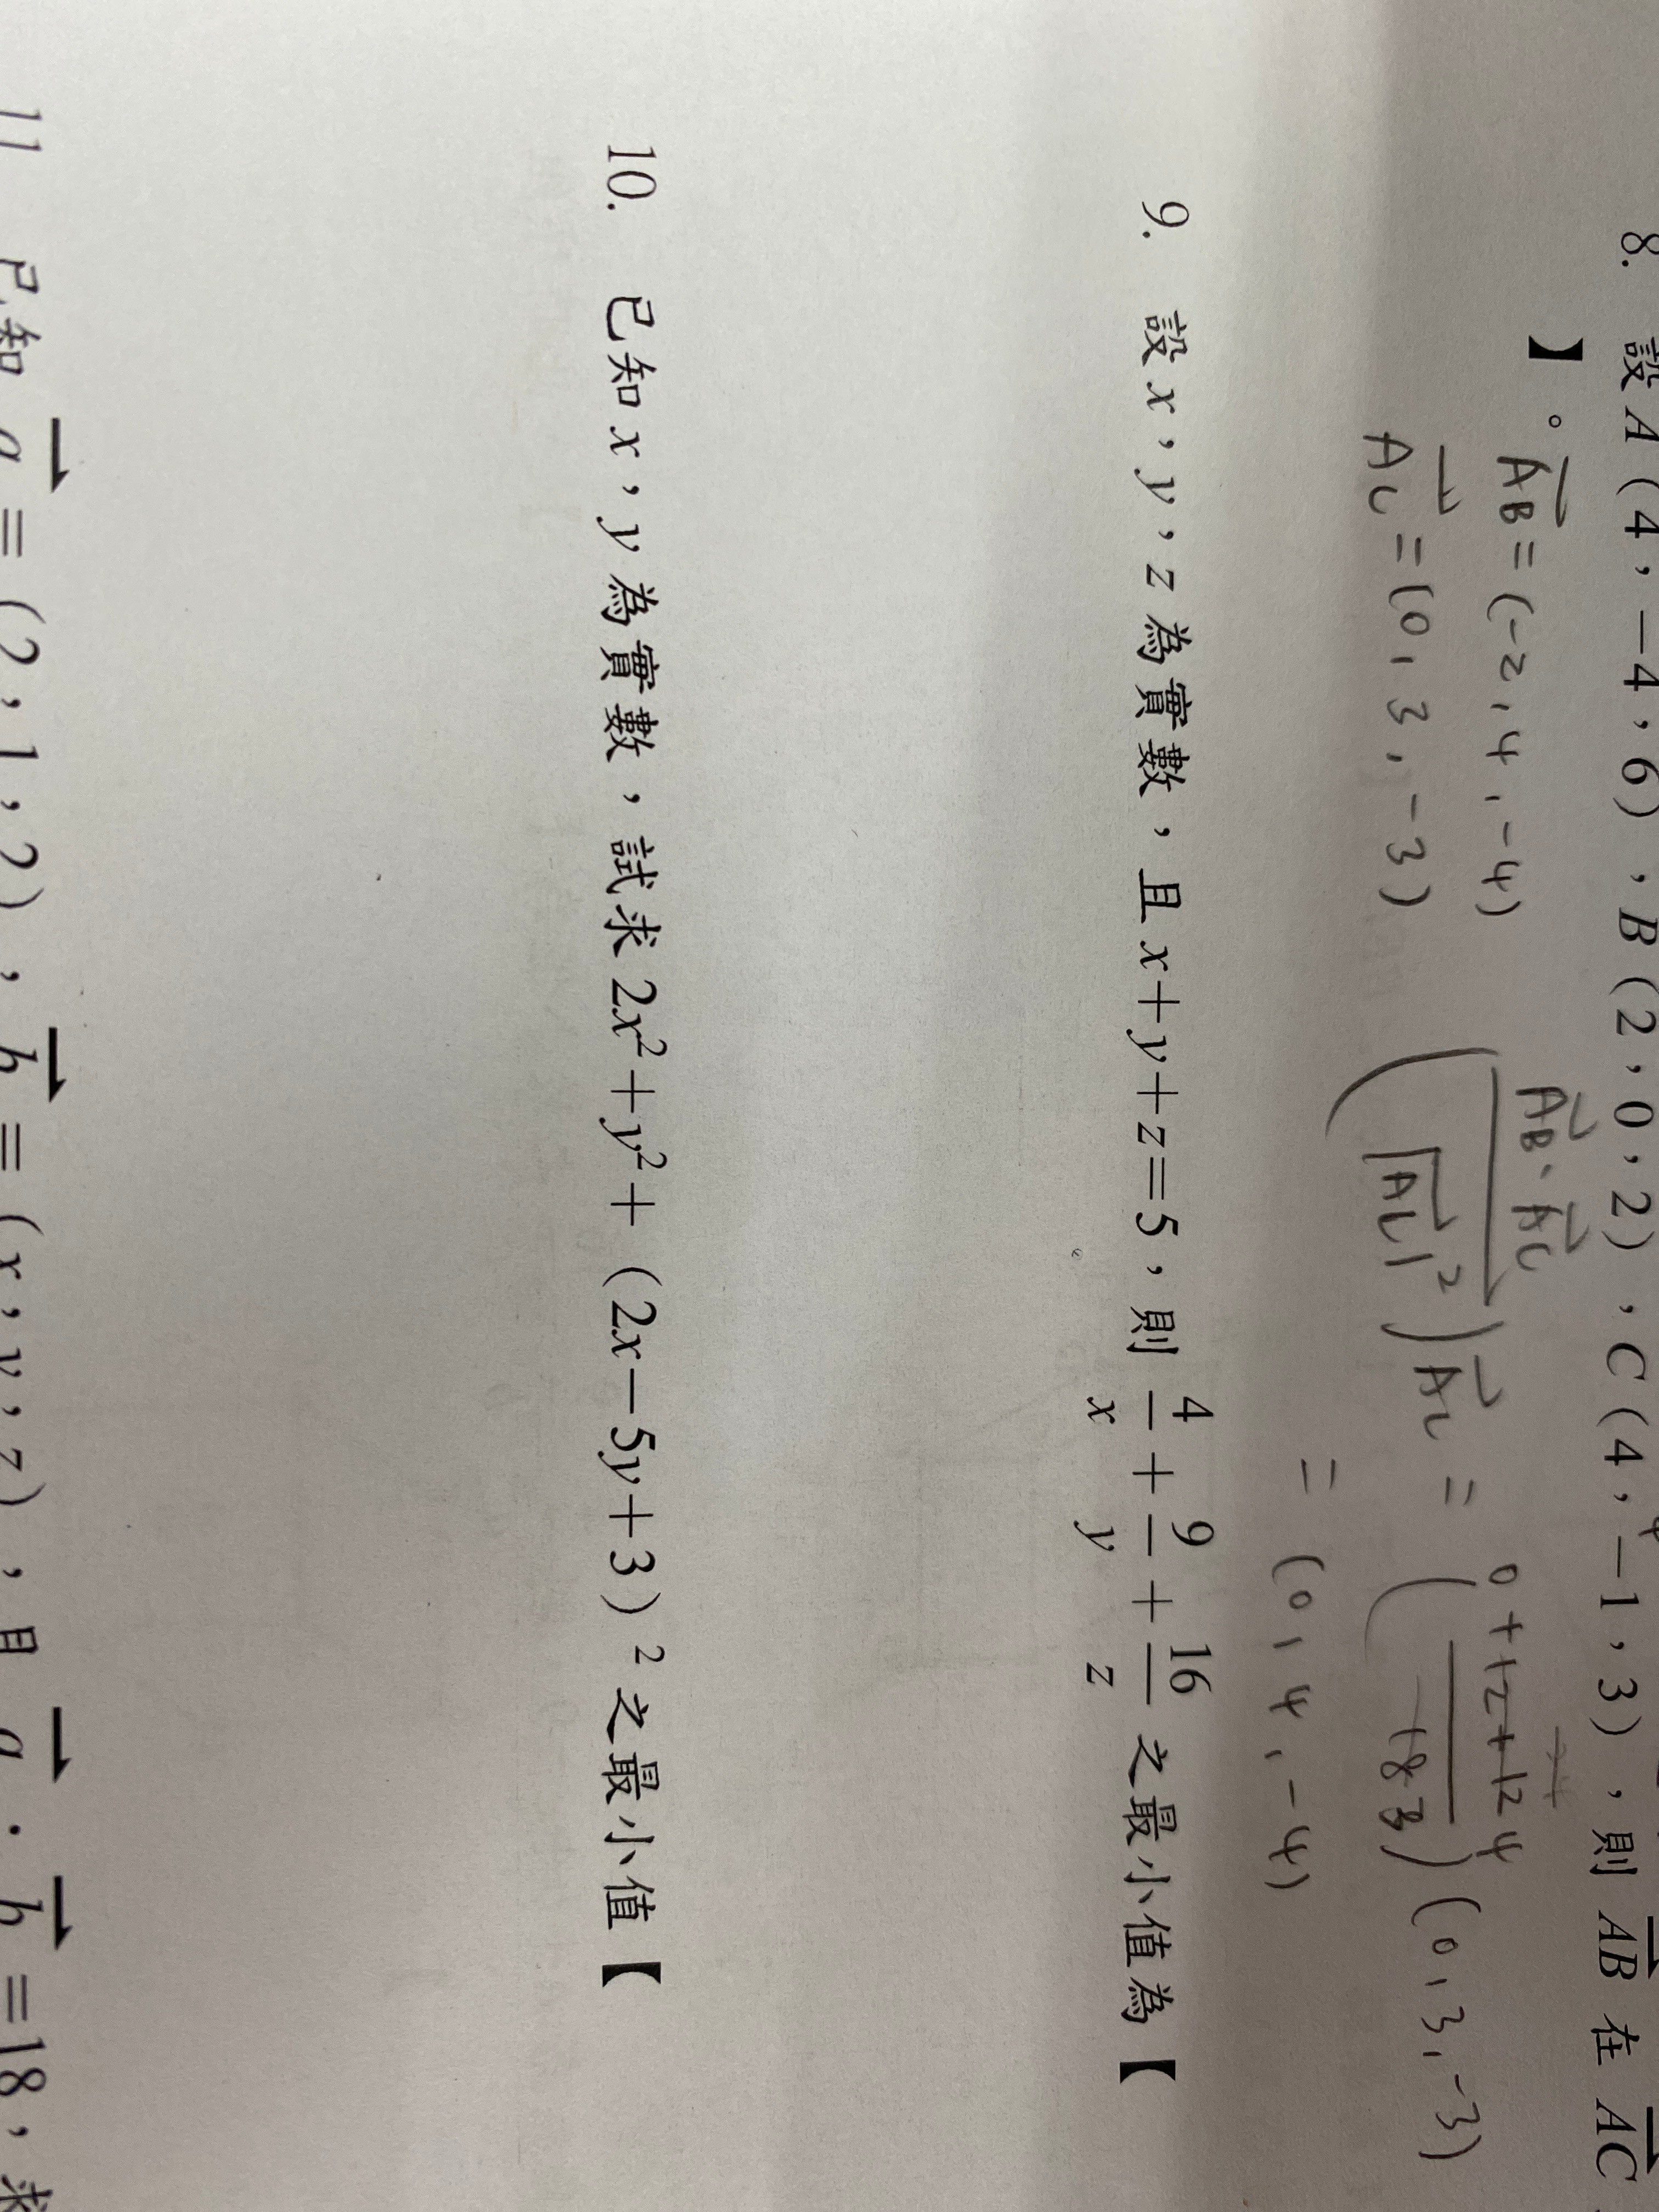 8. 設 A (4, −4, 6), B (2, 0, 2), C (4, −1, 3), 則 AB 在 AC
】。
AB = (-2, 4, -4)
AC = (0, 3, -3)
(AB · AC / |AC|²) AC = (0+12+12 / 18) (0, 3, -3)
= (0, 4, -4)
9. 設 x, y, z 為實數, 且 x+y+z=5, 則 4/x + 9/y + 16/z 之最小值為【
10. 已知 x, y 為實數, 試求 2x²+y²+ (2x−5y+3)² 之最小值【
11 已知 a = (2, 1, 2), b = (x, y, z), 且 a · b =18, 求